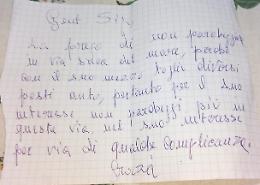 Gent Sig.
La prego di non parcheggiare
in via                     perché
con il suo mezzo toglie diversi
posti auto, pertanto per il suo
interesse non parcheggi più in
questa via, nel suo interesse
per via di qualche complicanza.
Grazie